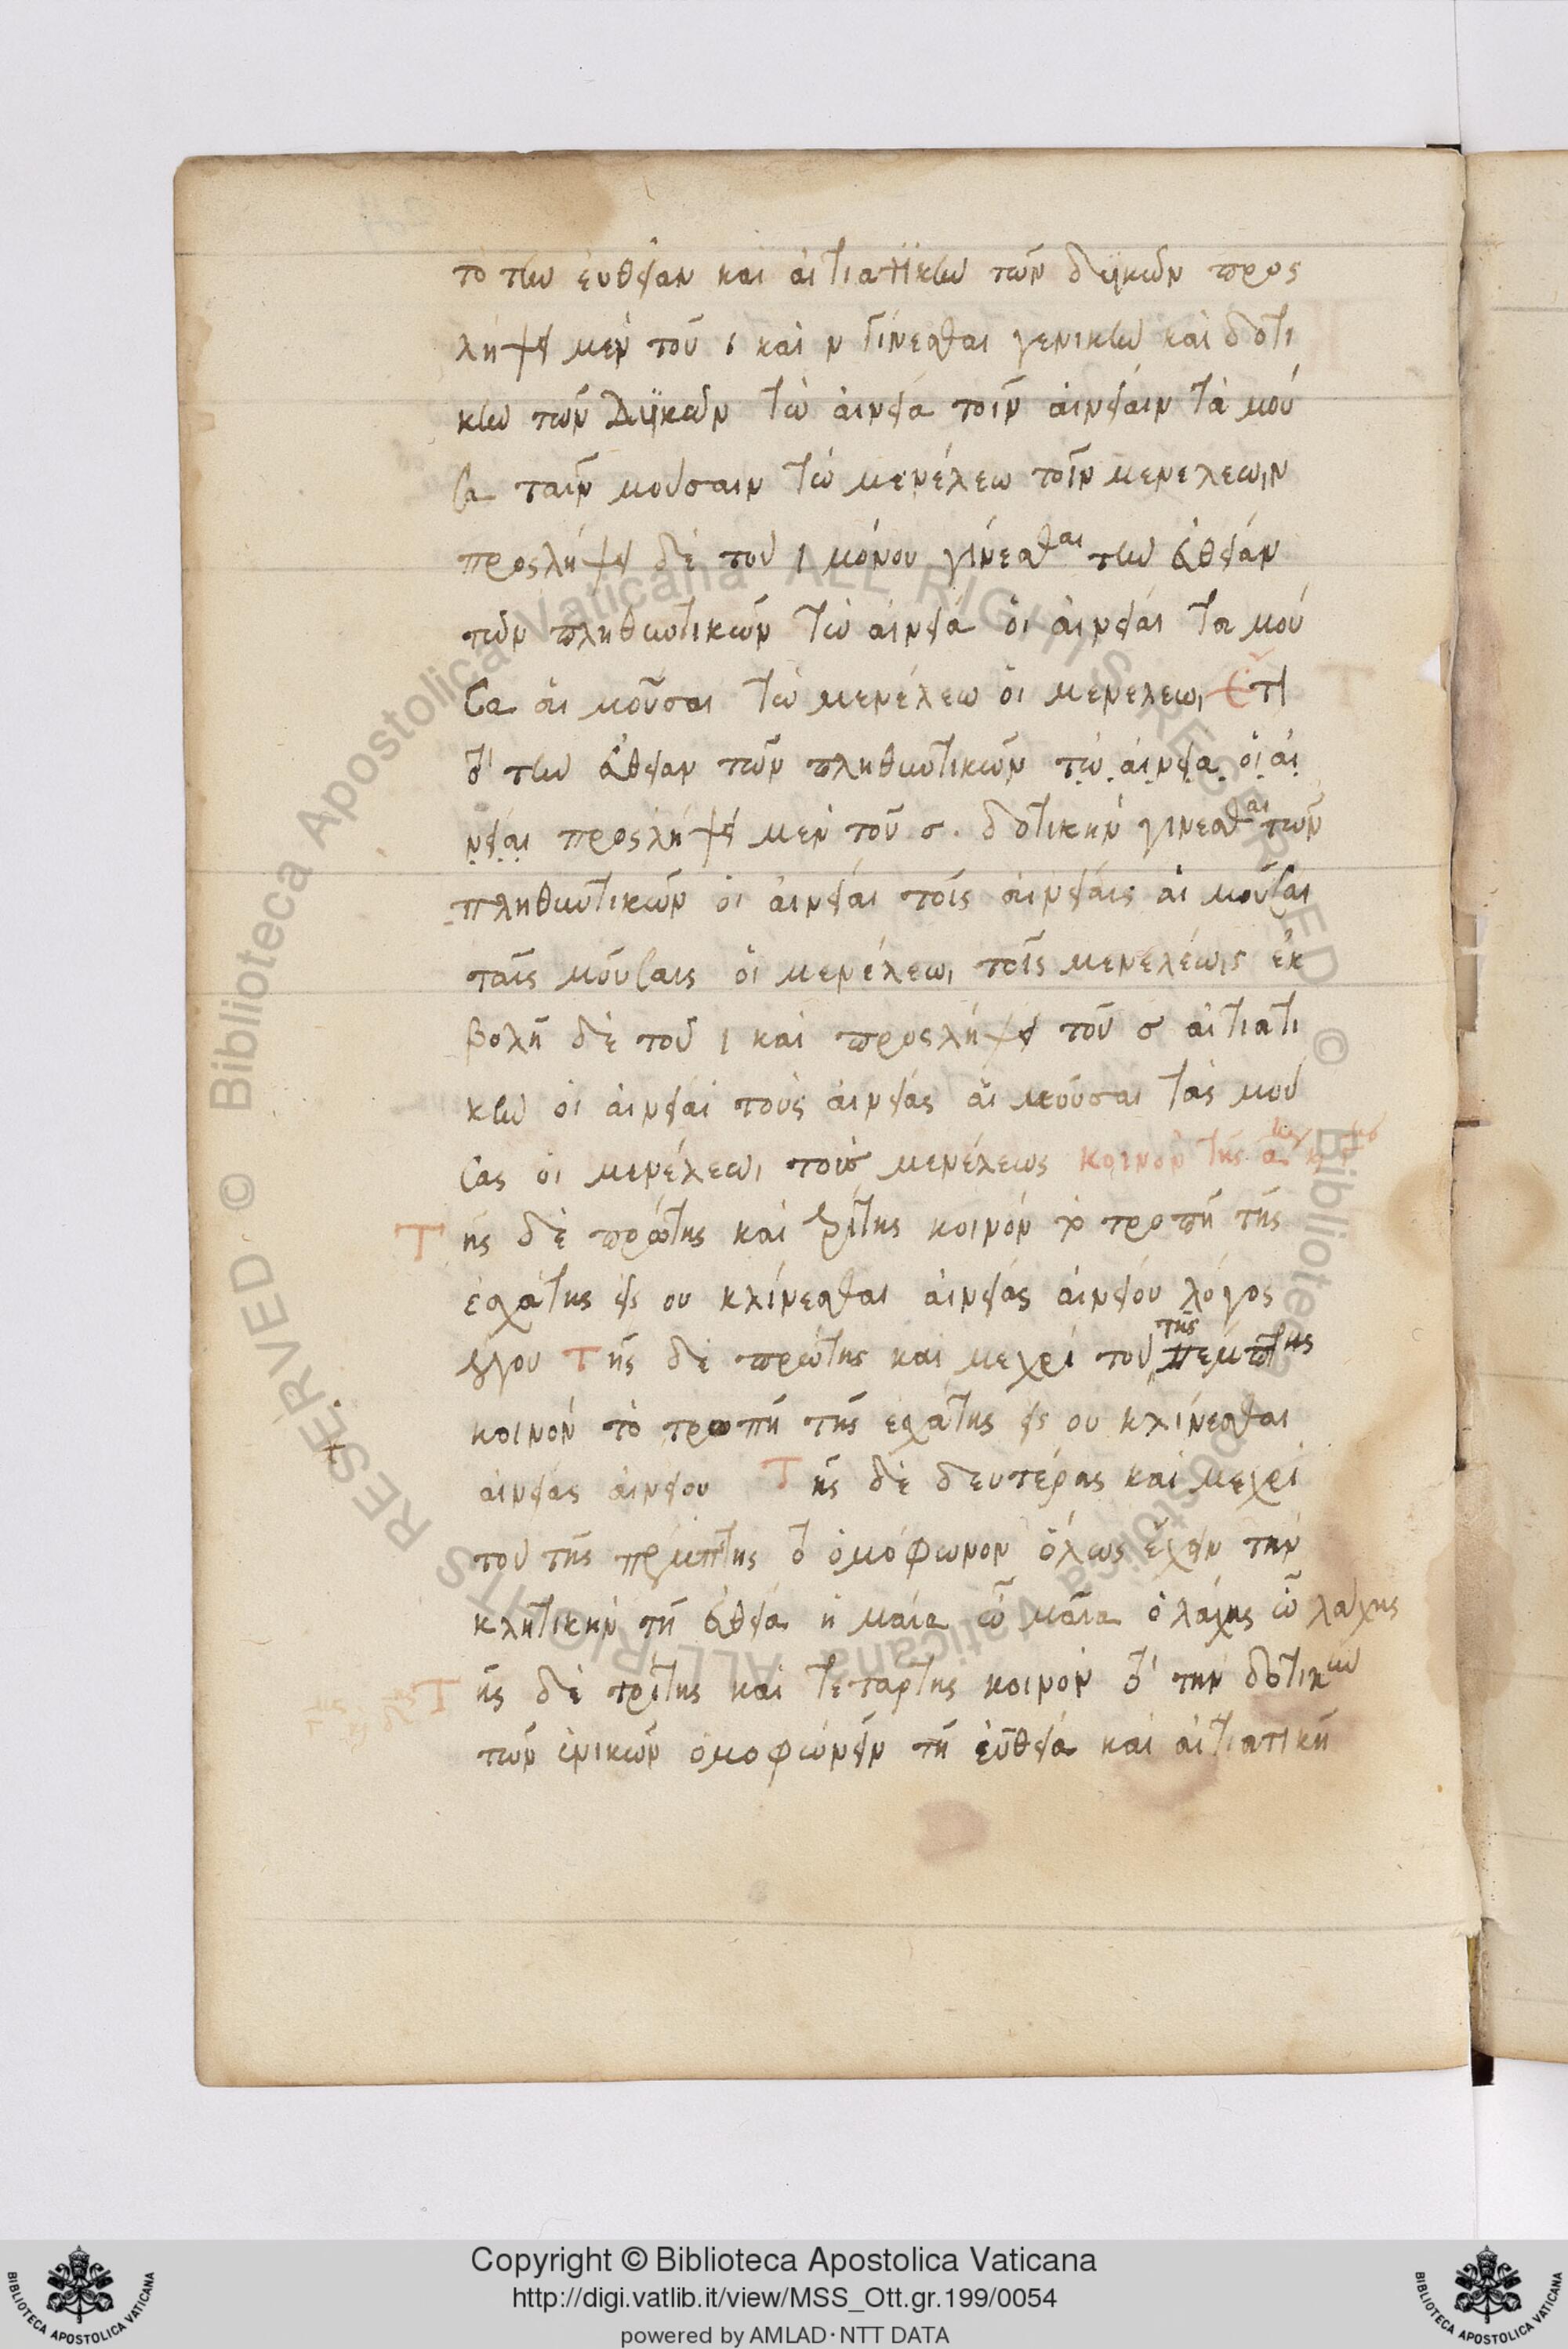 τὸ τὴν ἐυθεῖαν καὶ αἰτιατϊκὴν τῶν δυϊκῶν προς
λήψει μὲν τοῦ ι καὶ ν γίνεσθαι γενικὴν καὶ δοτι
κὴν τῶν Δυϊκῶν τὼ ἀινεία τοῖν ἀινείαιν τὰ μού
σα ταῖν μούσαιν τὼ μενέλεω τοῖν μενελεωιν
προςλήψει δὲ τοῦ ι μόνου γίνεσθαι τὴν εὐθεῖαν
τῶν πληθυντικῶν τὼ αἰνεία ὁι ἀινείαι τα μού
σα ἁι μοῦσαι τὼ μενέλεω ὁι μενελεωι Ετι
τὸ τὴν εὐθεῖαν τῶν πληθυντικῶν τὼ ἀινεία ὁι ἀι
νείαι προςλήψει μὲν τοῦ σ. δοτικὴν γινεσθαι τῶν
πληθυντικῶν ὁι ἀινείαι τοῖς ἀινείαις ἁι μοῦσαι
ταῖς μούσαις ὁι μενέλεωι τοῖς μενελέωις ἐκ
βολῆ δὲ τοῦ ι καὶ προςλήψει τοῦ σ αἰτιατι
κὴν ὁι ἀινείαι τοὺς ἀινείας ἁι μοῦσαι τὰς μού
σας ὁι μενέλεωι τοὺς μενέλεως κοινὸν τῆς α
Της δὲ πρώτης καὶ τρίτης κοινὸν τὸ τροπῆ τῆς
ἐσχάτης εἰς ου κλίνεσθαι ἀινείας ἀινείου λόγος
λόγου Της δὲ πρώτης καὶ μεχρὶ τοῦ τῆς πέμπτης
κοινὸν τὸ τροπῆ τῆς ἐσχάτης εἰς ου κλίνεσθαι
ἀινείας ἀινείου Της δὲ δευτέρας καὶ μεχρὶ
τοῦ τῆς πέμπτης τὸ ὁμόφωνον ὅλως ἔχειν τὴν
κλητικὴν τῆ εὐθεία ἡ μαῖα ὦ μαῖα ὁ λάχης ὦ λάχης
Της δὲ τρίτης καὶ τετάρτης κοινὸν τὸ τὴν δοτικὴν
τῶν ἑνικῶν ὁμοφώνειν τῆ εὐθεία καὶ αἰτιατικῆ
Copyright © Biblioteca Apostolica Vaticana
http://digi.vatlib.it/view/MSS_Ott.gr.199/0054
powered by AMLAD·NTT DATA